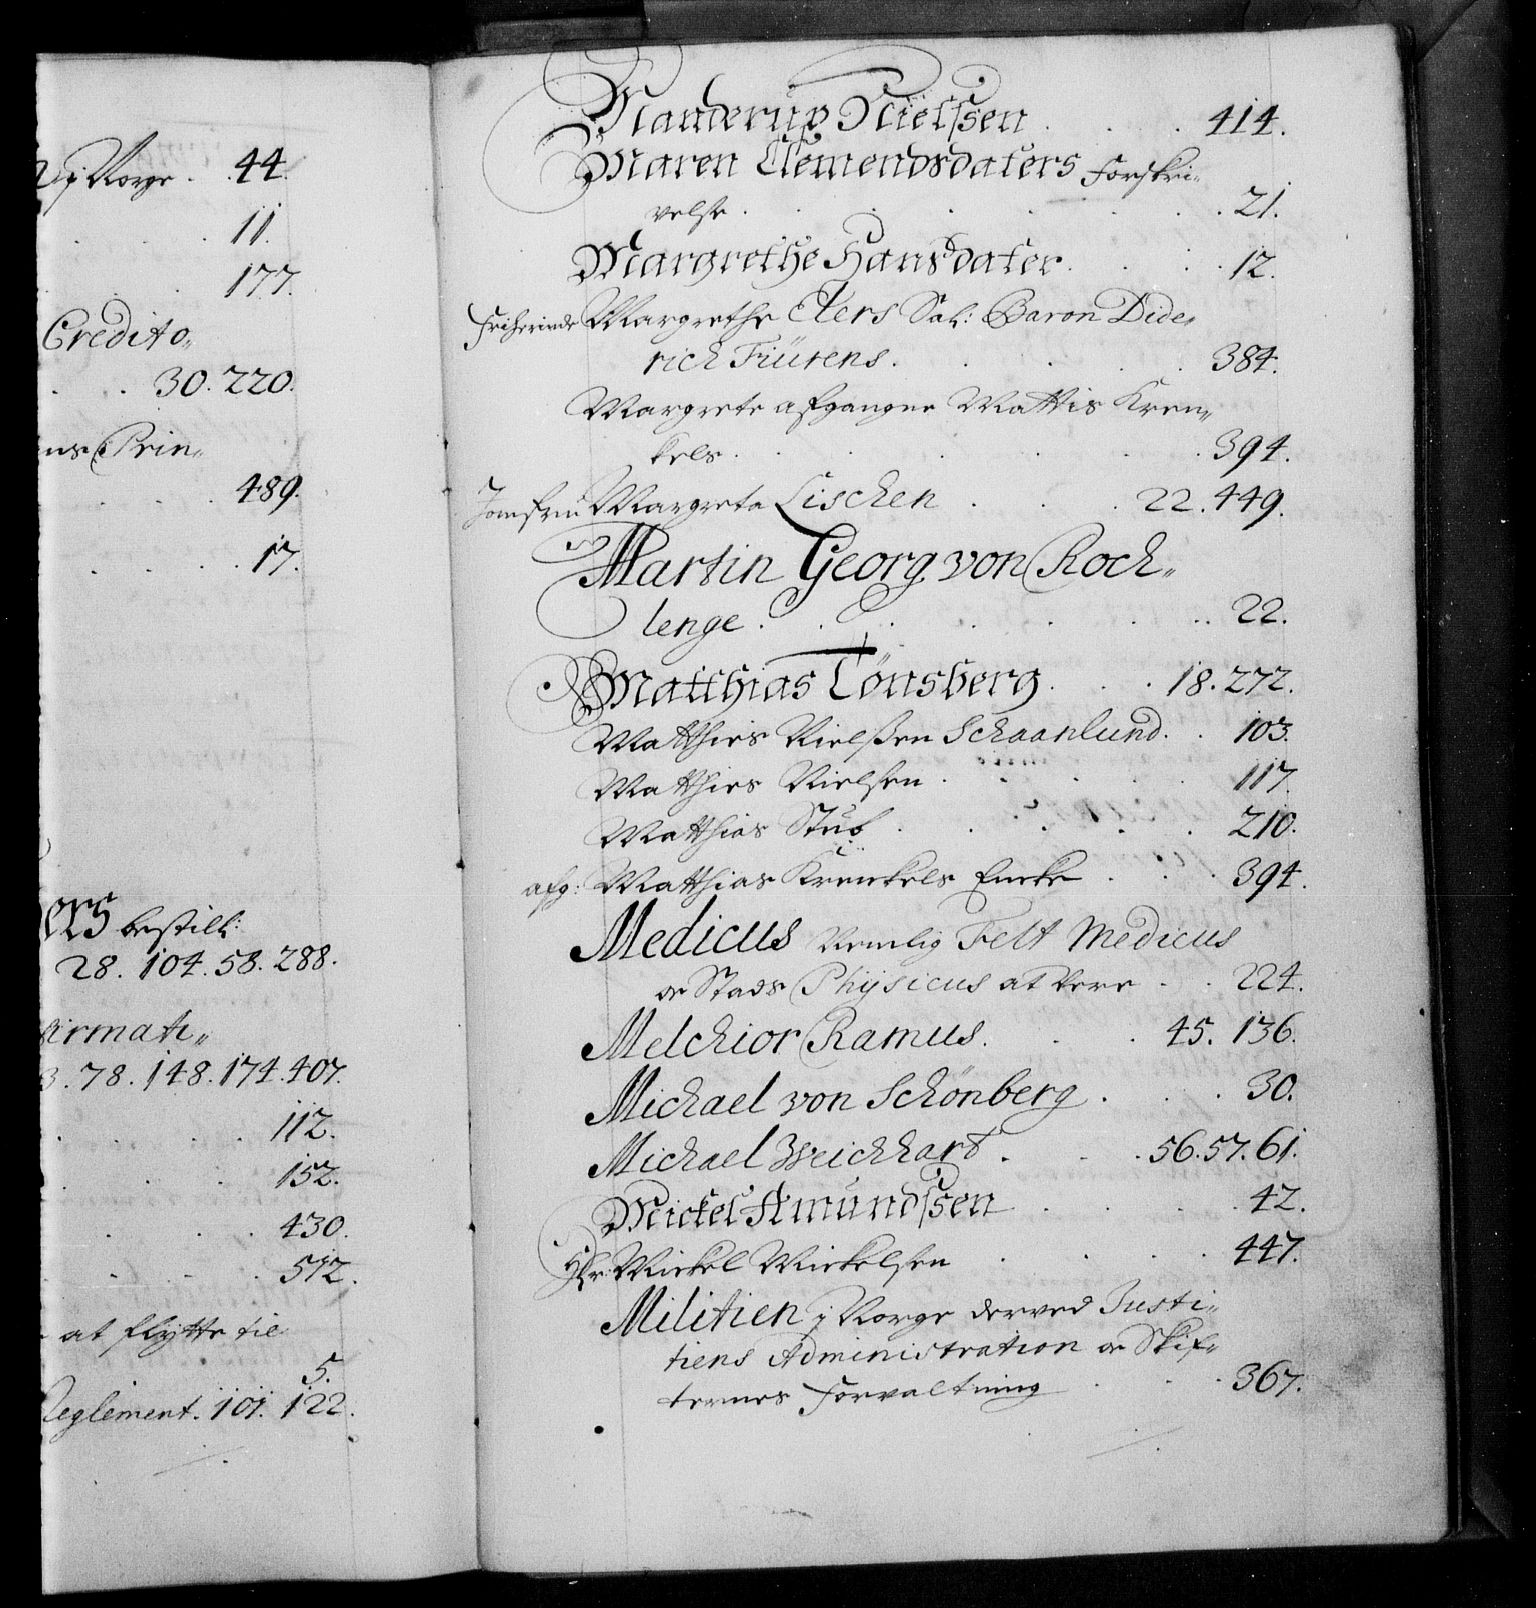 j Norge . . 44.
11.
177.
Credito„
30. 220.
ns Prin„
489.
17.
ers bestill:
28. 104. 58. 288.
irmati„
3. 78. 148. 174. 407.
112.
152.
430.
512.
at flytte til
5.
Reglement. 101. 122.
Manderup Nielssen . . . 414.
Maren Clemendsdaters forskri„
velse . . . 21.
Margrethe Hansdater . . . 12.
Friherinde Margrethe Elers Sal: Baron Dide„
rich Fiürens . . . 384.
Margrete afgangne Mattis Kren„
kels . . . 394.
Jomfru Margreta Lischen . . . 22. 449.
Martin Georg von Roch„
lenge . . . 22.
Matthias Tönsberg . . . 18. 272.
Matthies Nielßen Schaanlund . . 103.
Matthies Nielsen . . . 117.
Matthias Stub . . . 210.
afg: Matthias Krenkels Encke . . . 394.
Medicus Nemlig Felt Medicus
oc Stads Physicus at vere . . 224.
Melchior Ramus . . . 45. 136.
Michael von Schönberg . . . 30.
Michael Weichhart . . . 56. 57. 61.
Mickel Amundssen . . . 42.
Hr: Mickel Mickelsen . . . 447.
Militien j Norge derved Justi„
tiens Administration oc Skif„
ternes forvaltning . . . 367.